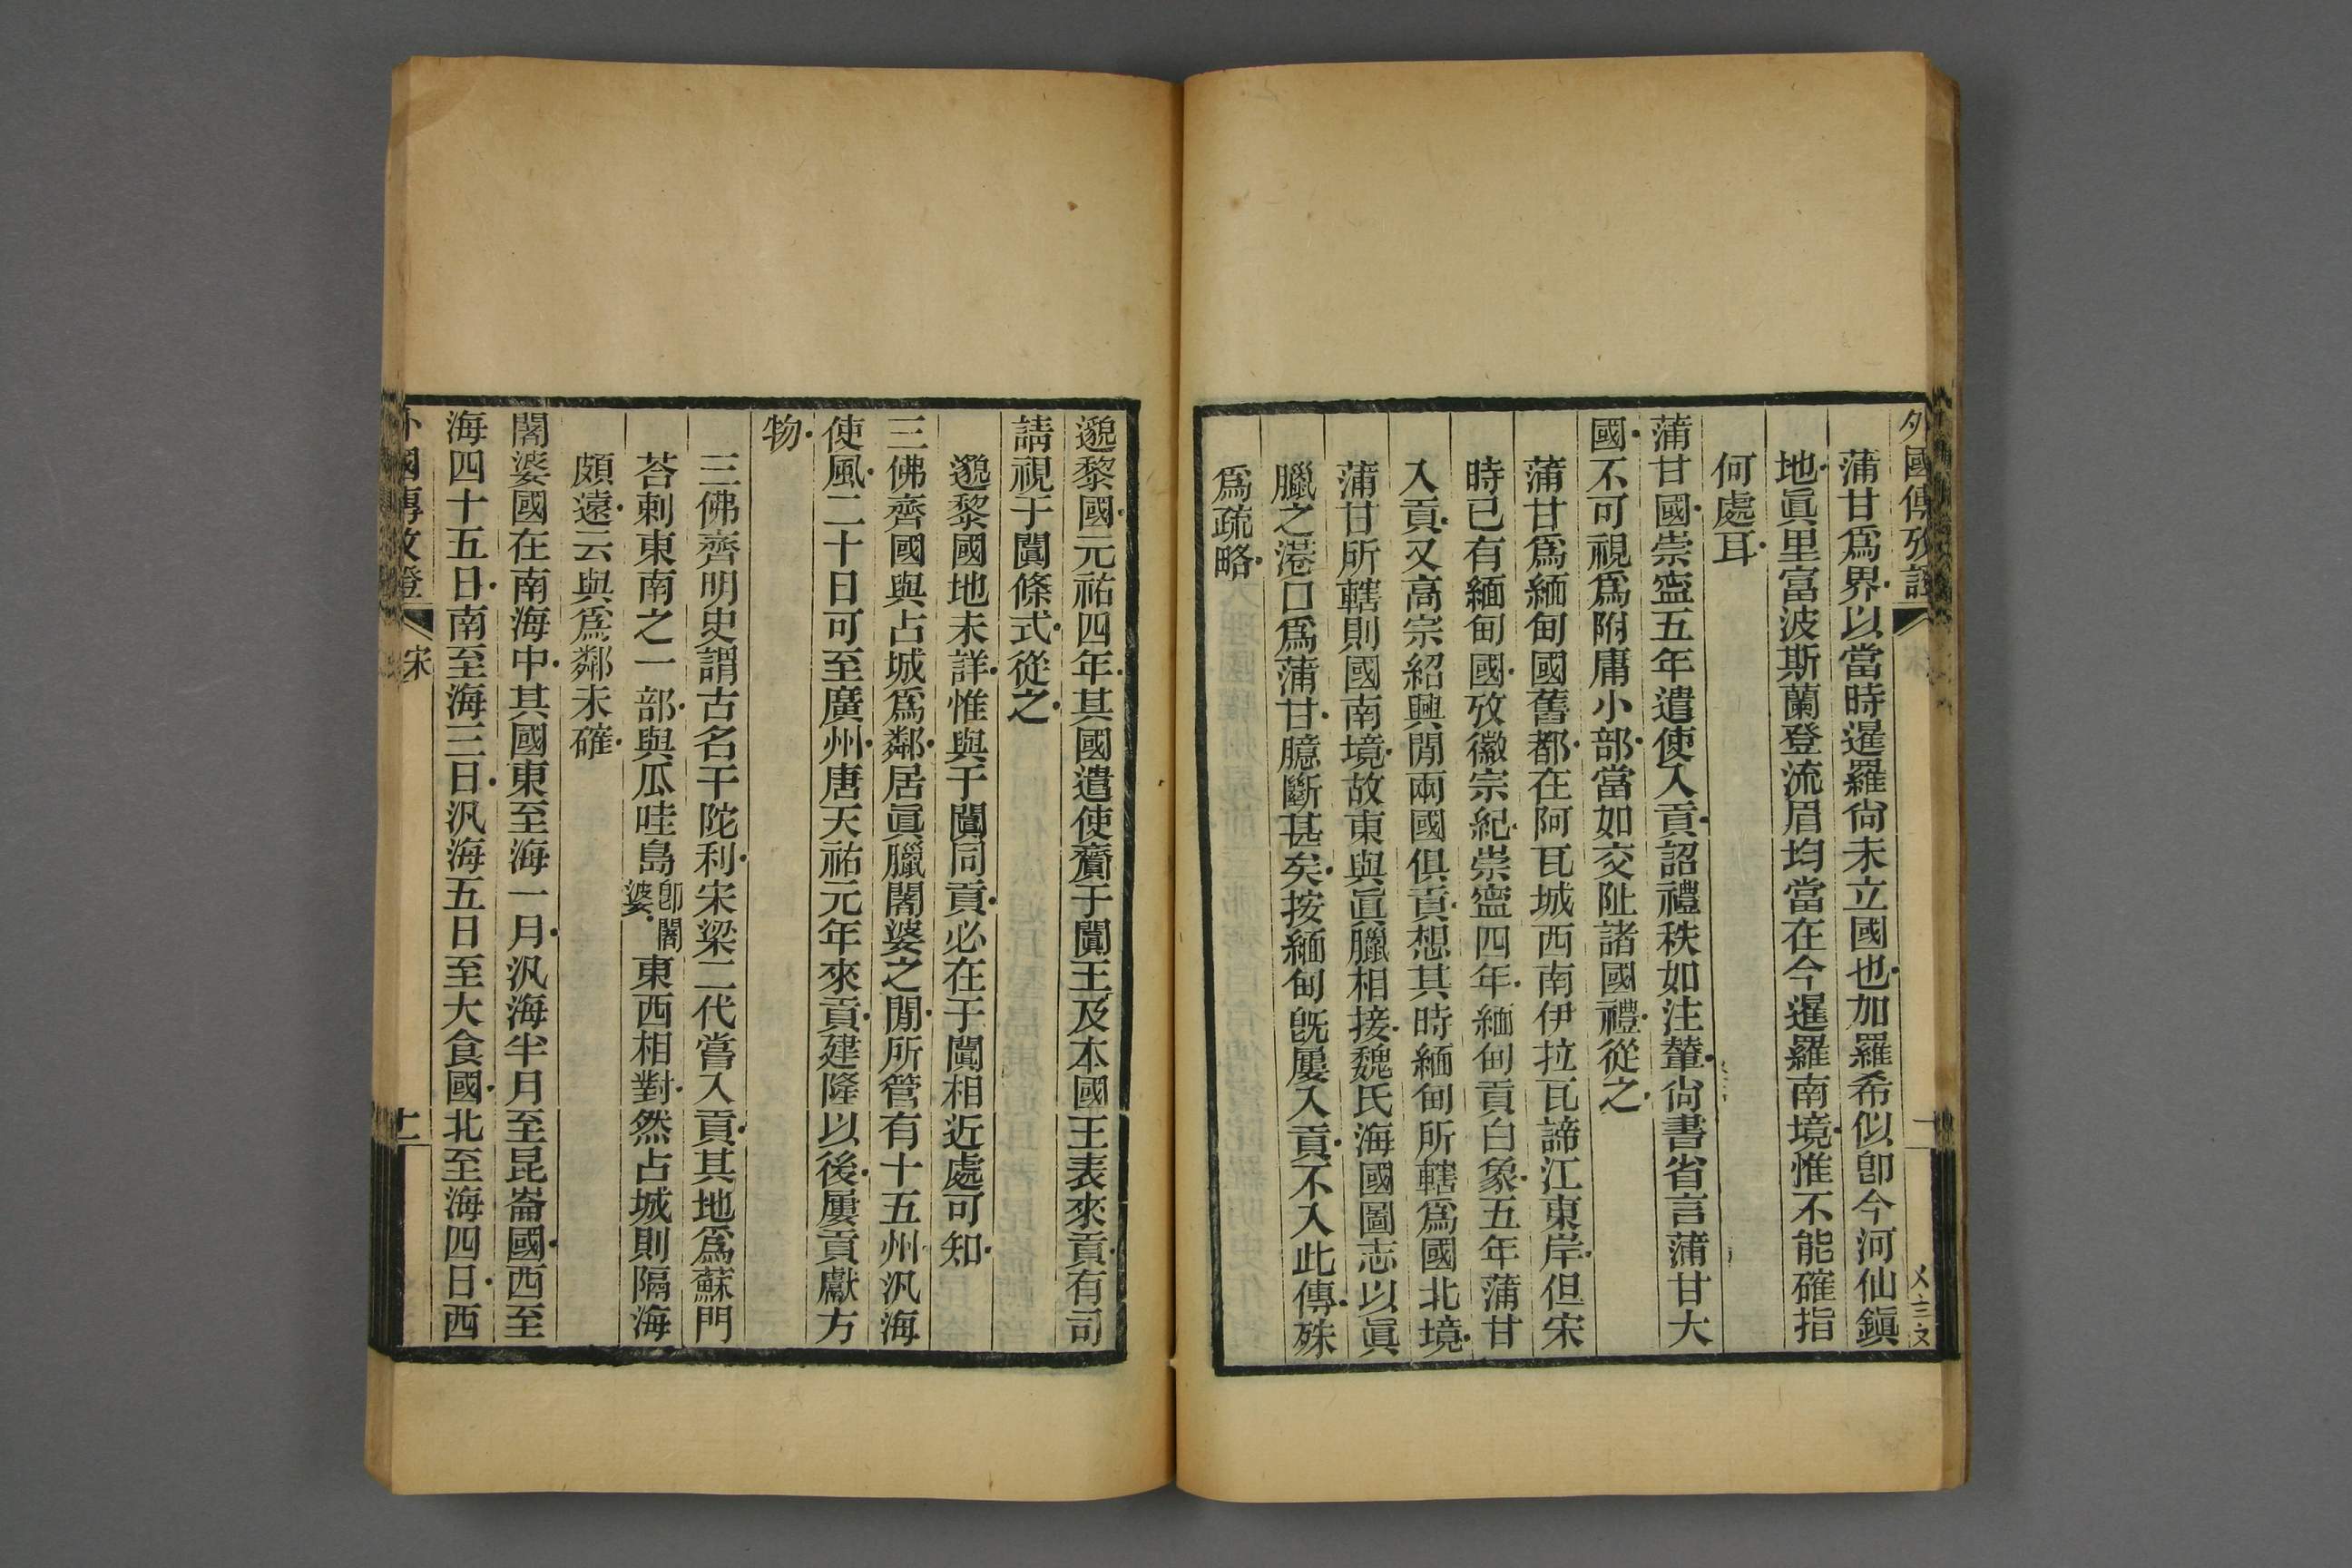 外國傳攷證
蒲甘爲界以當時暹羅尙未立國也加羅希似卽今河仙鎭
地眞里富波斯蘭登流眉均當在今暹羅南境惟不能確指
何處耳
蒲甘國崇寧五年遣使入貢詔禮秩如注輦尙書省言蒲甘大
國不可視爲附庸小部當如交阯諸國禮從之
蒲甘爲緬甸國舊都在阿瓦城西南伊拉瓦諦江東岸但宋
時已有緬甸國攷徽宗紀崇寧四年緬甸貢白象五年蒲甘
入貢又高宗紹興閒兩國俱貢想其時緬甸所轄爲國北境
蒲甘所轄則國南境故東與眞臘相接魏氏海國圖志以眞
臘之港口爲蒲甘臆斷甚矣按緬甸旣屢入貢不入此傳殊
爲疏略
邈黎國元祐四年其國遣使齎于闐王及本國王表來貢有司
請視于闐條式從之
邈黎國地未詳惟與于闐同貢必在于闐相近處可知
三佛齊國與占城爲鄰居眞臘闍婆之閒所管有十五州汎海
使風二十日可至廣州唐天祐元年來貢建隆以後屢貢獻方
物
三佛齊明史謂古名干陀利宋梁二代嘗入貢其地爲蘇門
荅剌東南之一部與瓜哇島卽闍婆東西相對然占城則隔海
頗遠云與爲鄰未確
闍婆國在南海中其國東至海一月汎海半月至昆崙國西至
海四十五日南至海三日汎海五日至大食國北至海四日西
外國傳攷證 宋 十一